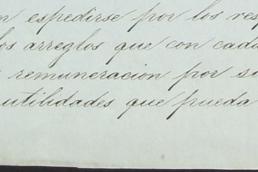 n expedirse por los resp
los arreglos que con cada
remuneracion por su
utilidades que pueda